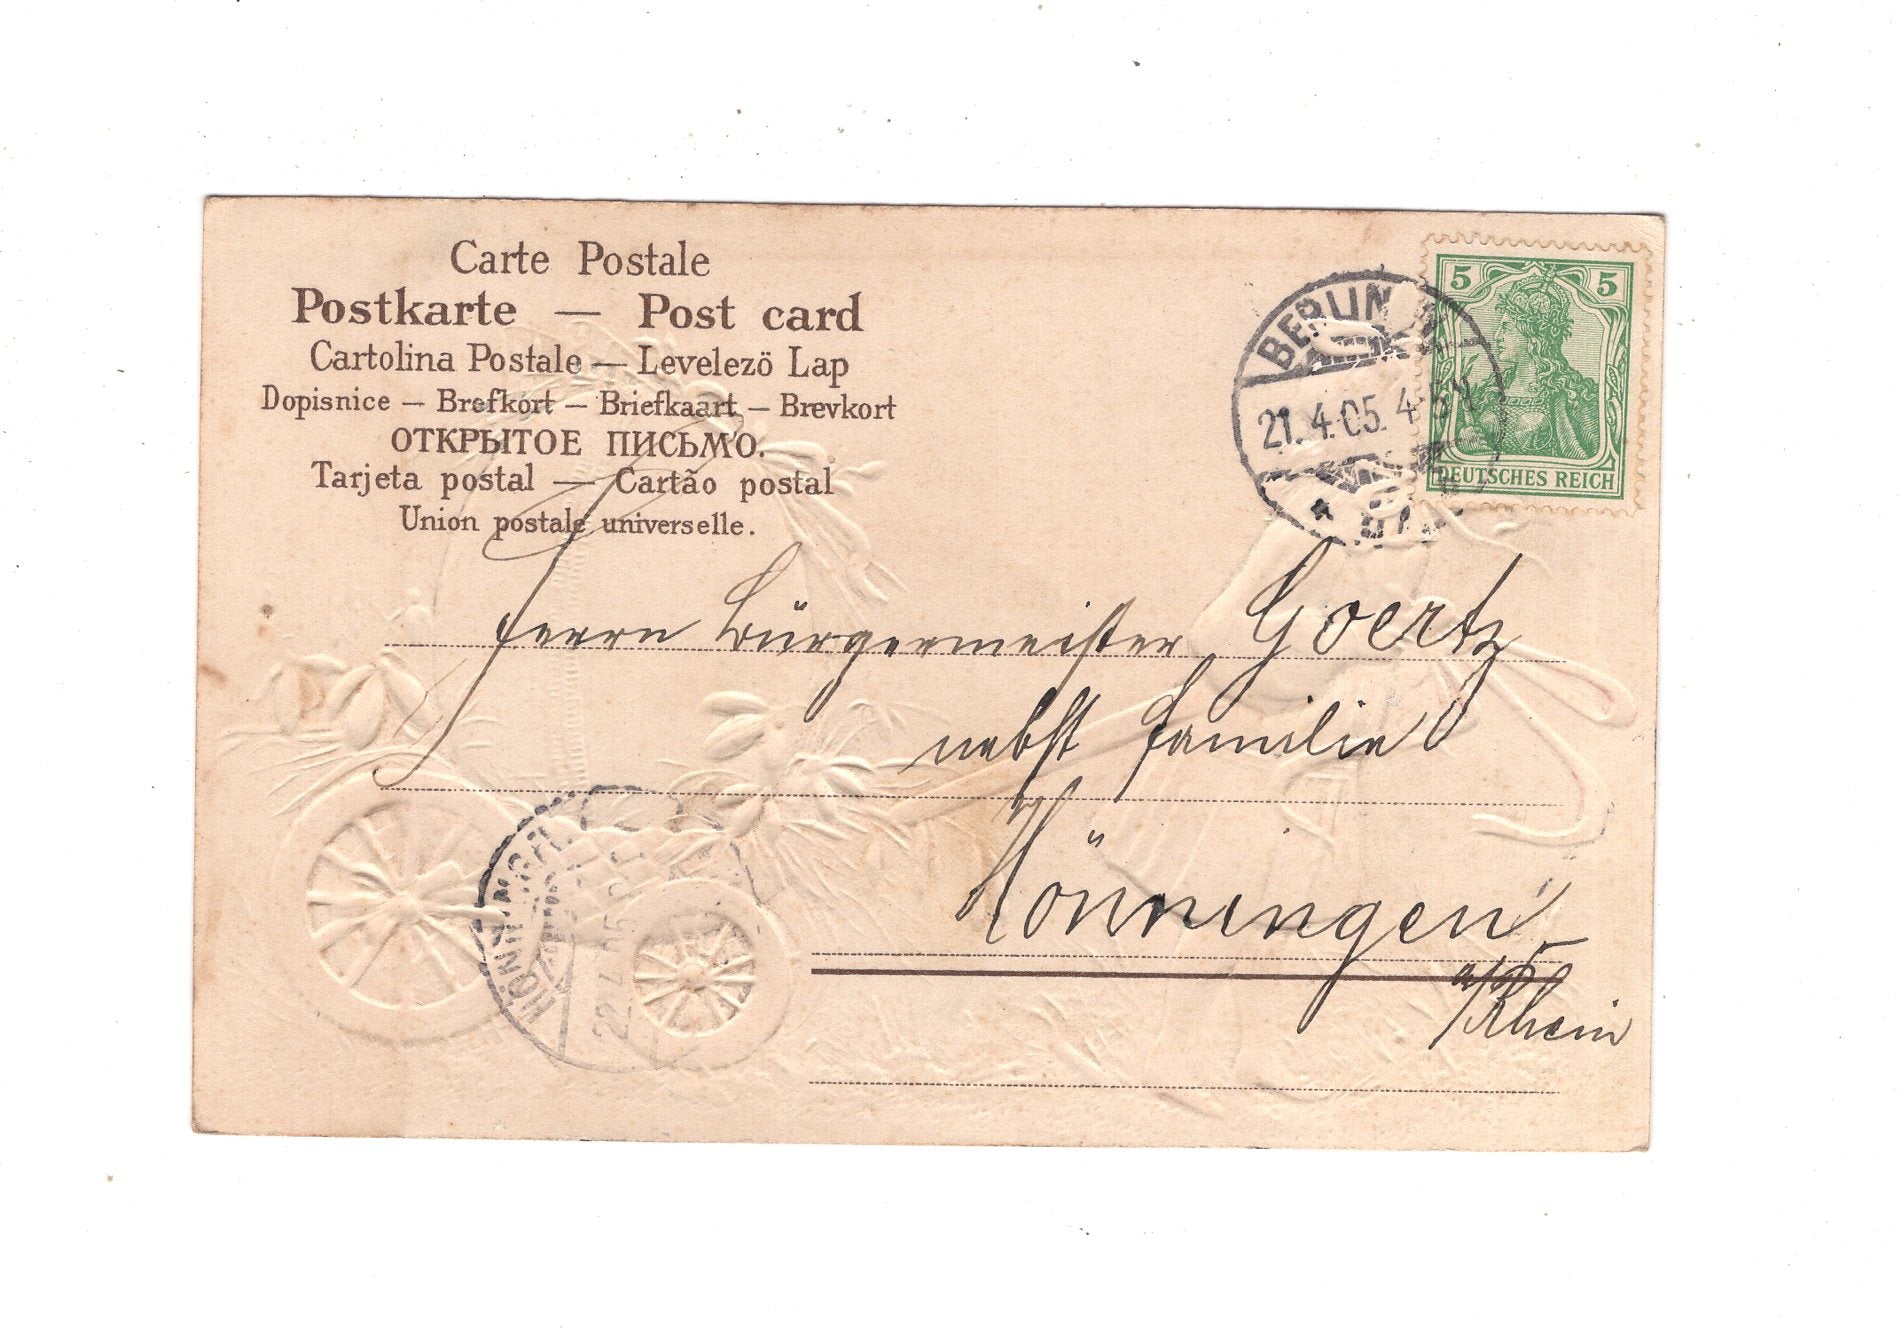 Carte Postale
Postkarte — Post card
Cartolina Postale — Levelező Lap
Dopisnice — Brefkort — Briefkaart — Brevkort
ОТКРЫТОЕ ПИСЬМО.
Tarjeta postal — Cartão postal
Union postale universelle.
BERLIN W
21.4.05. 4-5N
5 5
DEUTSCHES REICH
Herrn Bürgermeister Goertz
nebst Familie
Hönningen
a/Rhein
HÖNNINGEN
22.4.05